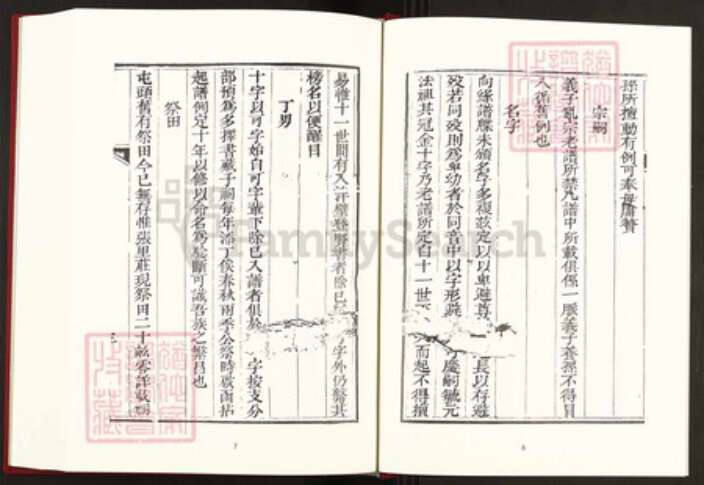 孫所擅動有例可奉毋庸贅
宗嗣
義子亂宗老譜所禁凡譜中所載俱係一脈義子養孫不得冒
入循舊例也
名字
向緣譜牒未頒名字多複茲定以以卑避尊 長以存避
歿若同歿則為卑幼者於同音中以字形 慶嗣毓元
法祖其冠金十字乃老譜所定自十一世 而起不得擅
易惟十一世間有入 者除已 字外仍繫其
榜名以便醒目
丁男
十字以可字始自可字輩下除已入譜者俱於 字按支分
部預為多擇書藏子祠每年添丁俟春秋兩季公祭時啟函拈
起譜例定十年以修以命名為 斷可識吾族之繁昌也
祭田
屯頭舊有祭田今已無存惟張里莊現祭田二十畝零詳載
7
6
FamilySearch